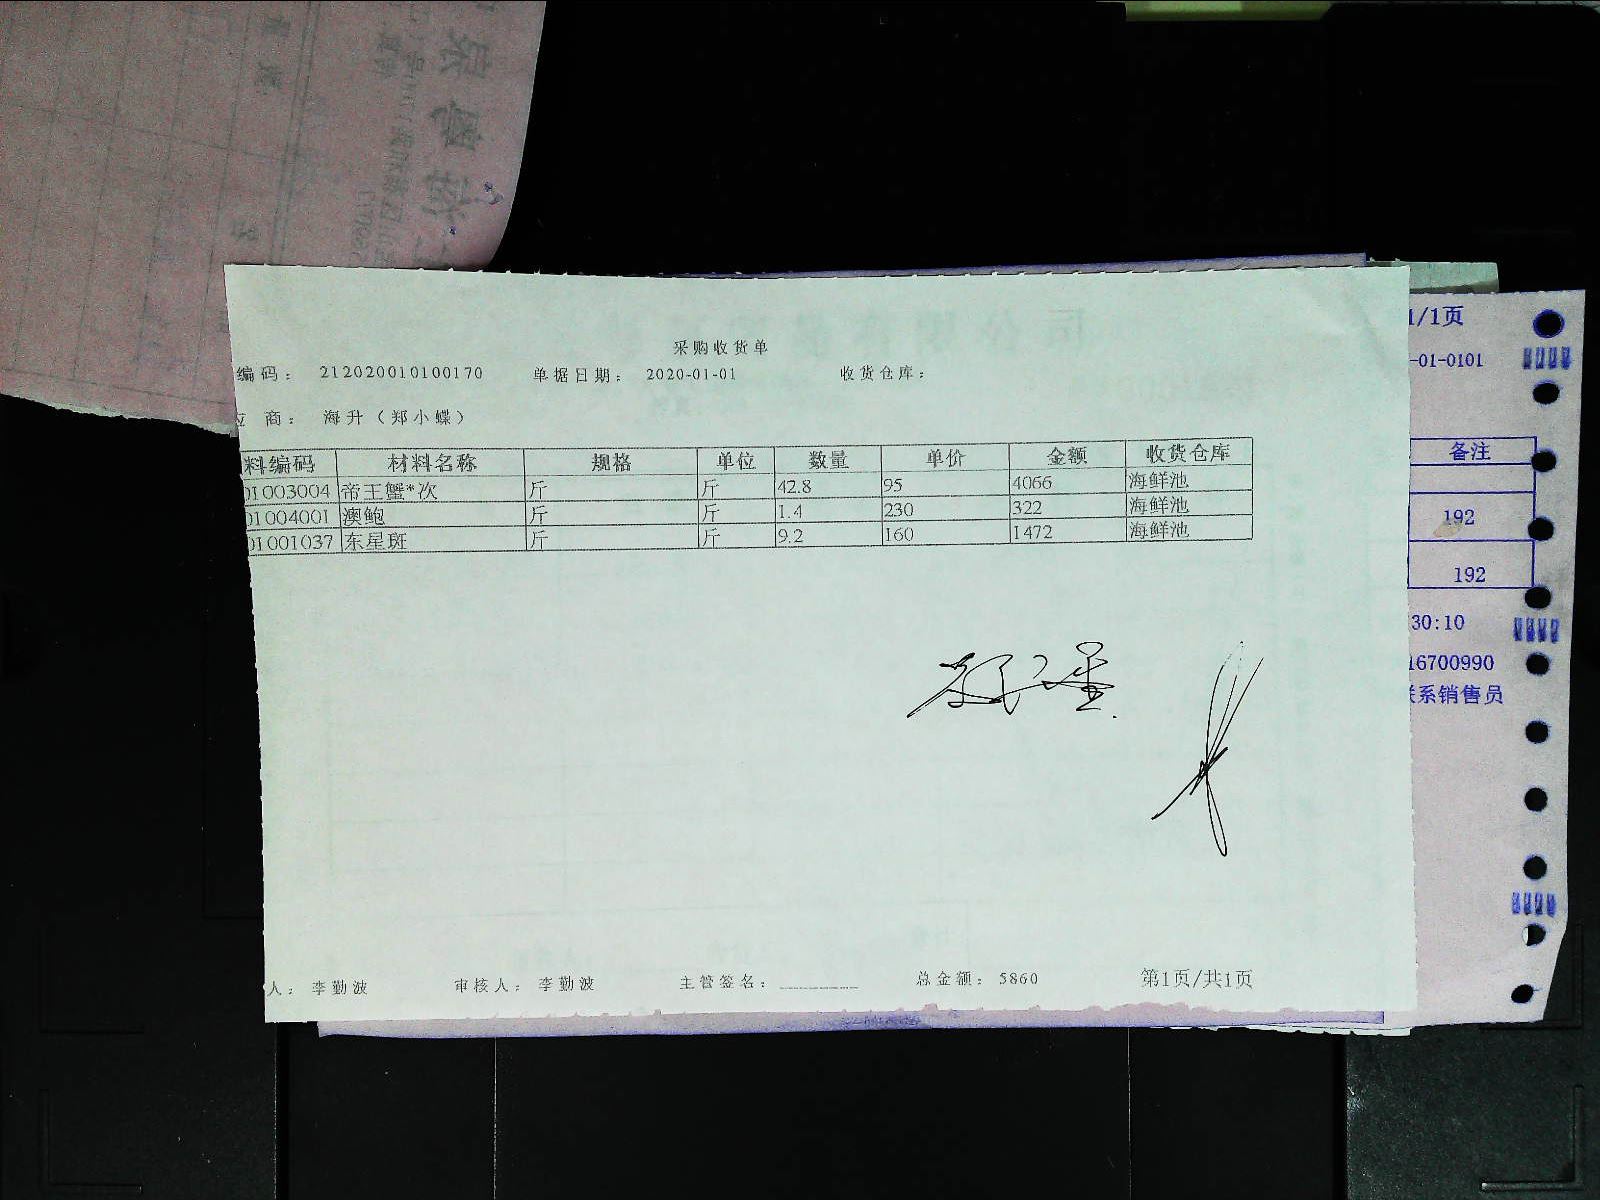 采购收货单
编码： 212020010100170 单据日期： 2020-01-01 收货仓库：
商： 海升（郑小蝶）
料编码 材料名称 规格 单位 数量 单价 金额 收货仓库
01003004 帝王蟹*次 斤 斤 42.8 95 4066 海鲜池
01004001 澳鲍 斤 斤 1.4 230 322 海鲜池
01001037 东星斑 斤 斤 9.2 160 1472 海鲜池
人： 李勤波 审核人： 李勤波 主管签名：________ 总金额： 5860 第1页/共1页
1/1页
-01-0101
备注
192
192
30:10
16700990
系销售员